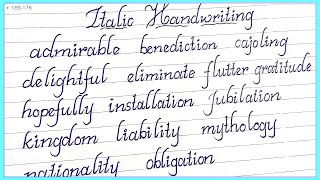 185-176
Italic Handwriting
admirable benediction cajoling
delightful eliminate flutter gratitude
hopefully installation Jubilation
kingdom liability mythology
nationality obligation